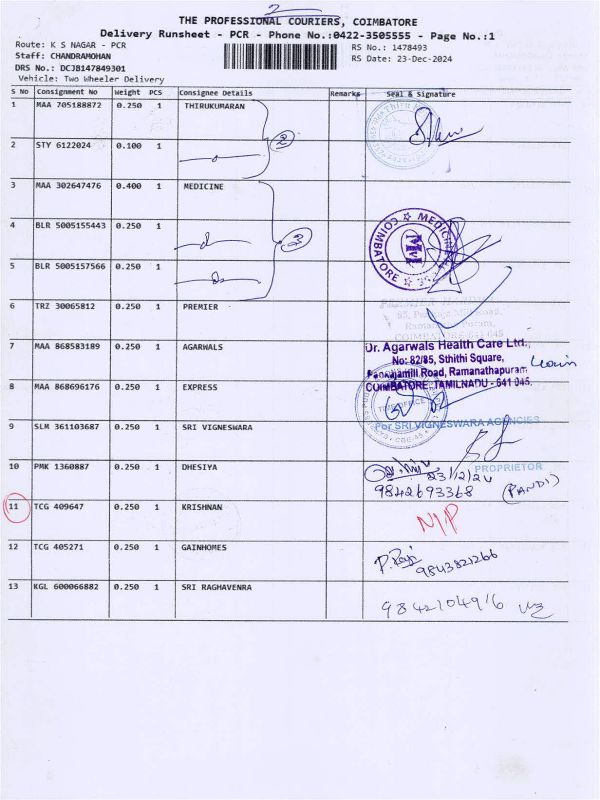 2
THE PROFESSIONAL COURIERS, COIMBATORE
Delivery Runsheet - PCR - Phone No.:0422-3505555 - Page No.:1
Route: K S NAGAR - PCR
RS No.: 1478493
Staff: CHANDRAMOHAN
RS Date: 23-Dec-2024
DRS No.: DCJB147849301
Vehicle: Two Wheeler Delivery
S No Consignment No Weight PCS Consignee Details Remarks Seal & Signature
1 MAA 705188872 0.250 1 THIRUKUMARAN
2 STY 6122024 0.100 1
2
3 MAA 302647476 0.400 1 MEDICINE
4 BLR 5005155443 0.250 1
MEDICINE
COIMBATORE
5 BLR 5005157566 0.250 1
6 TRZ 30065812 0.250 1 PREMIER
COIMBATORE 641 045
7 MAA 868583189 0.250 1 AGARWALS
Dr. Agarwals Health Care Ltd.,
No: 82/85, Sthithi Square,
Pankajamill Road, Ramanathapuram,
COIMBATORE, TAMILNADU - 641 045.
8 MAA 868696176 0.250 1 EXPRESS
TIME OFFICE
9 SLM 361103687 0.250 1 SRI VIGNESWARA
For SRI VIGNESWARA AGENCIES
PROPRIETOR
10 PMK 1360887 0.250 1 DHESIYA
23/12/24
9842693368 (PANDI)
11 TCG 409647 0.250 1 KRISHNAN
N/P
12 TCG 405271 0.250 1 GAINHOMES
P. Raji 9843821266
13 KGL 600066882 0.250 1 SRI RAGHAVENRA
9842104916